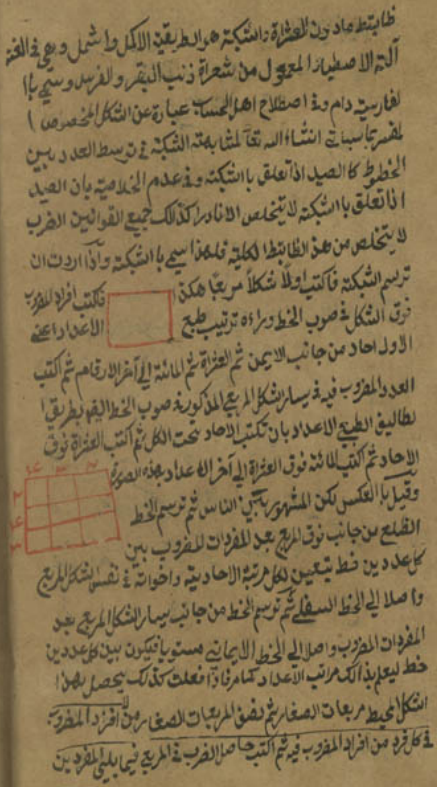 ضابطة مادون العشرة والشبكة هو الطريقة الاكمل واشمل وهى فى اللغة
آلة الاصطياد المعمول من شعراة ذنب البقر والفرس وسمى با
لفارسية دام وفى اصطلاح اهل الحساب عبارة عن الشكل المخصوص
لمفسر بما سيأتى انشاء الله تعا لمشابهته الشبكة فى توسط العدد بين
الخطوط كا الصيد اذا تعلق با الشبكة وفى عدم الخلاصية بان الصيد
اذا تعلق با الشبكة لا يتخلص الا نادرا كذلك جميع القوانين الضرب
لا يتخلص من هذا الضابطا لكلية فلهذا سمى با الشبكة واذا اردت ان
ترسم الشبكة فاكتب اولا شكلا مربعا هكذا فاكتب افراد المضروب
فوق الشكل فى صوب الخط وراءه ترتيب طبع الاعداد اعنى
الاول احاد من جانب الايمن ثم العشرة ثم المائة الى آخر الارقام ثم اكتب
العدد المضروب فيه فى يسار الشكل المربع المذكور فى صوب الخط ايضا بطريق
الطبع الاعداد بان تكتب الاحاد تحت الكل ثم اكتب العشرة فوق
الاحاد ثم اكتب المائة فوق العشرة الى آخر الاعداد بهذه الصورة
وقيل با العكس لكن المشهور بين الناس ثم ترسم الخط
الضلع من جانب فوق المربع بعد المفردات المضروب بين
كل عددين خط يتعين لكل مرتبة الاحادية واخواته فى نفس الشكل المربع
واصلا الى الخط السفلى ثم ترسم الخط من جانب يسار الشكل المربع بعد
المفردات المضروب واصلا الى الخط الايمانى مستويا فيكون بين كل عددين
خط ليعلم بذالك مراتب الاعداد كما مر فاذا فعلت كذلك يحصل بهذا
الشكل المحيط مربعات الصغار ثم نصف المربعات الصغار من افراد المضروب
فى كل فرد من افراد المضروب فيه ثم اكتب حاصل الضرب فى المربع فيما يلى المفردين